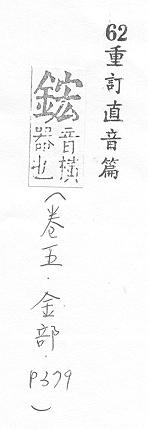 62重訂直音篇
鋐
音橫
器也
(卷五.金部.P379)